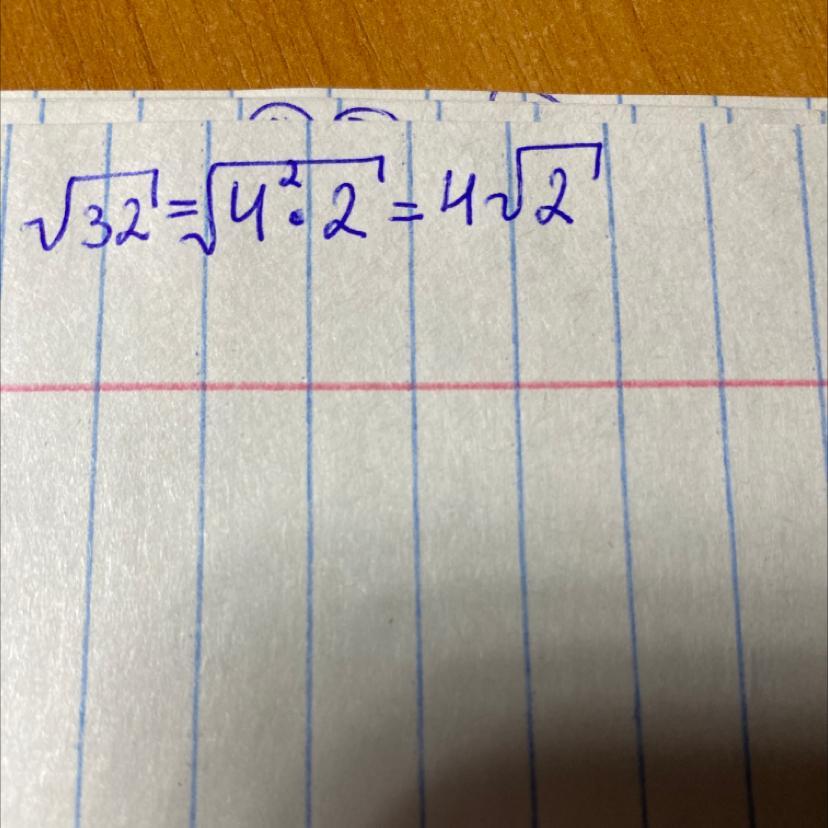 √32 = √4² · 2 = 4√2